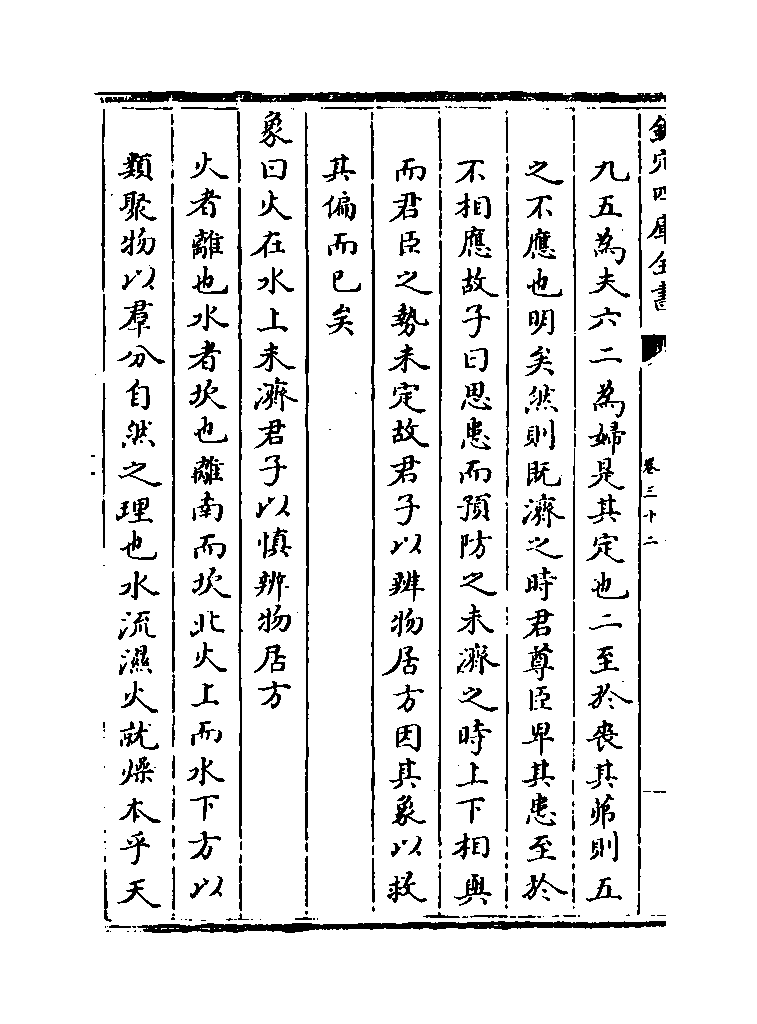 欽定四庫全書
卷三十二
九五為夫六二為婦是其定也二至於喪其茀則五
之不應也明矣然則既濟之時君尊臣卑其患至於
不相應故子曰思患而預防之未濟之時上下相與
而君臣之勢未定故君子以辨物居方因其象以救
其偏而已矣
象曰火在水上未濟君子以慎辨物居方
火者離也水者坎也離南而坎北火上而水下方以
類聚物以羣分自然之理也水流濕火就燥本乎天